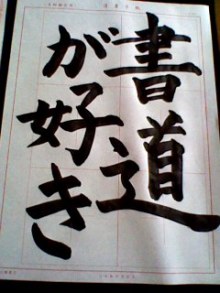 書道
が好き